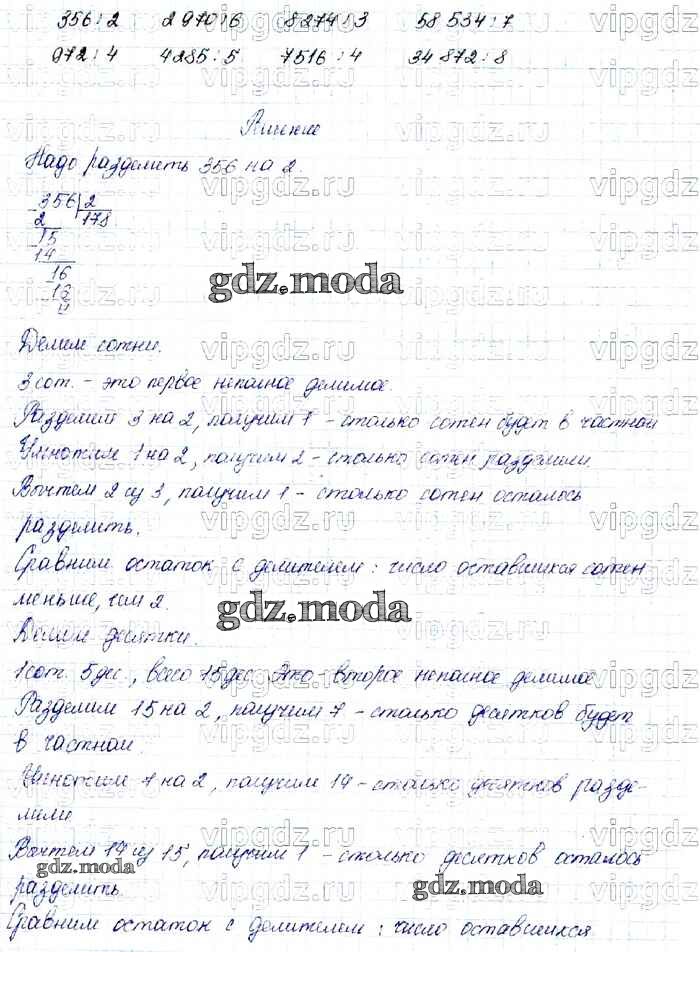 356:2 2970:6 8274:3 58 534:7
972:4 4285:5 7516:4 34 872:8
Решение
Надо разделить 356 на 2.
356 2
2 178
15
14
16
gdz.moda
Делим сотни.
3 сот. - это первое неполное делимое.
Разделим 3 на 2, получим 1 - столько сотен будет в частном
Умножим 1 на 2, получим 2 - столько сотен разделили.
Вычтем 2 из 3, получим 1 - столько сотен осталось
разделить.
Сравним остаток с делителем: число оставшихся сотен
меньше, чем 2.
gdz.moda
Делим десятки.
1 сот. 5 дес., всего 15 дес. Это - второе неполное делимое
Разделим 15 на 2, получим 7 - столько десятков будет
в частном.
Умножим 7 на 2, получим 14 - столько десятков разде-
лили
Вычтем 14 из 15, получим 1 - столько десятков осталось
разделить.
gdz.moda
gdz.moda
Сравним остаток с делителем: число оставшихся
vipgdz.ru